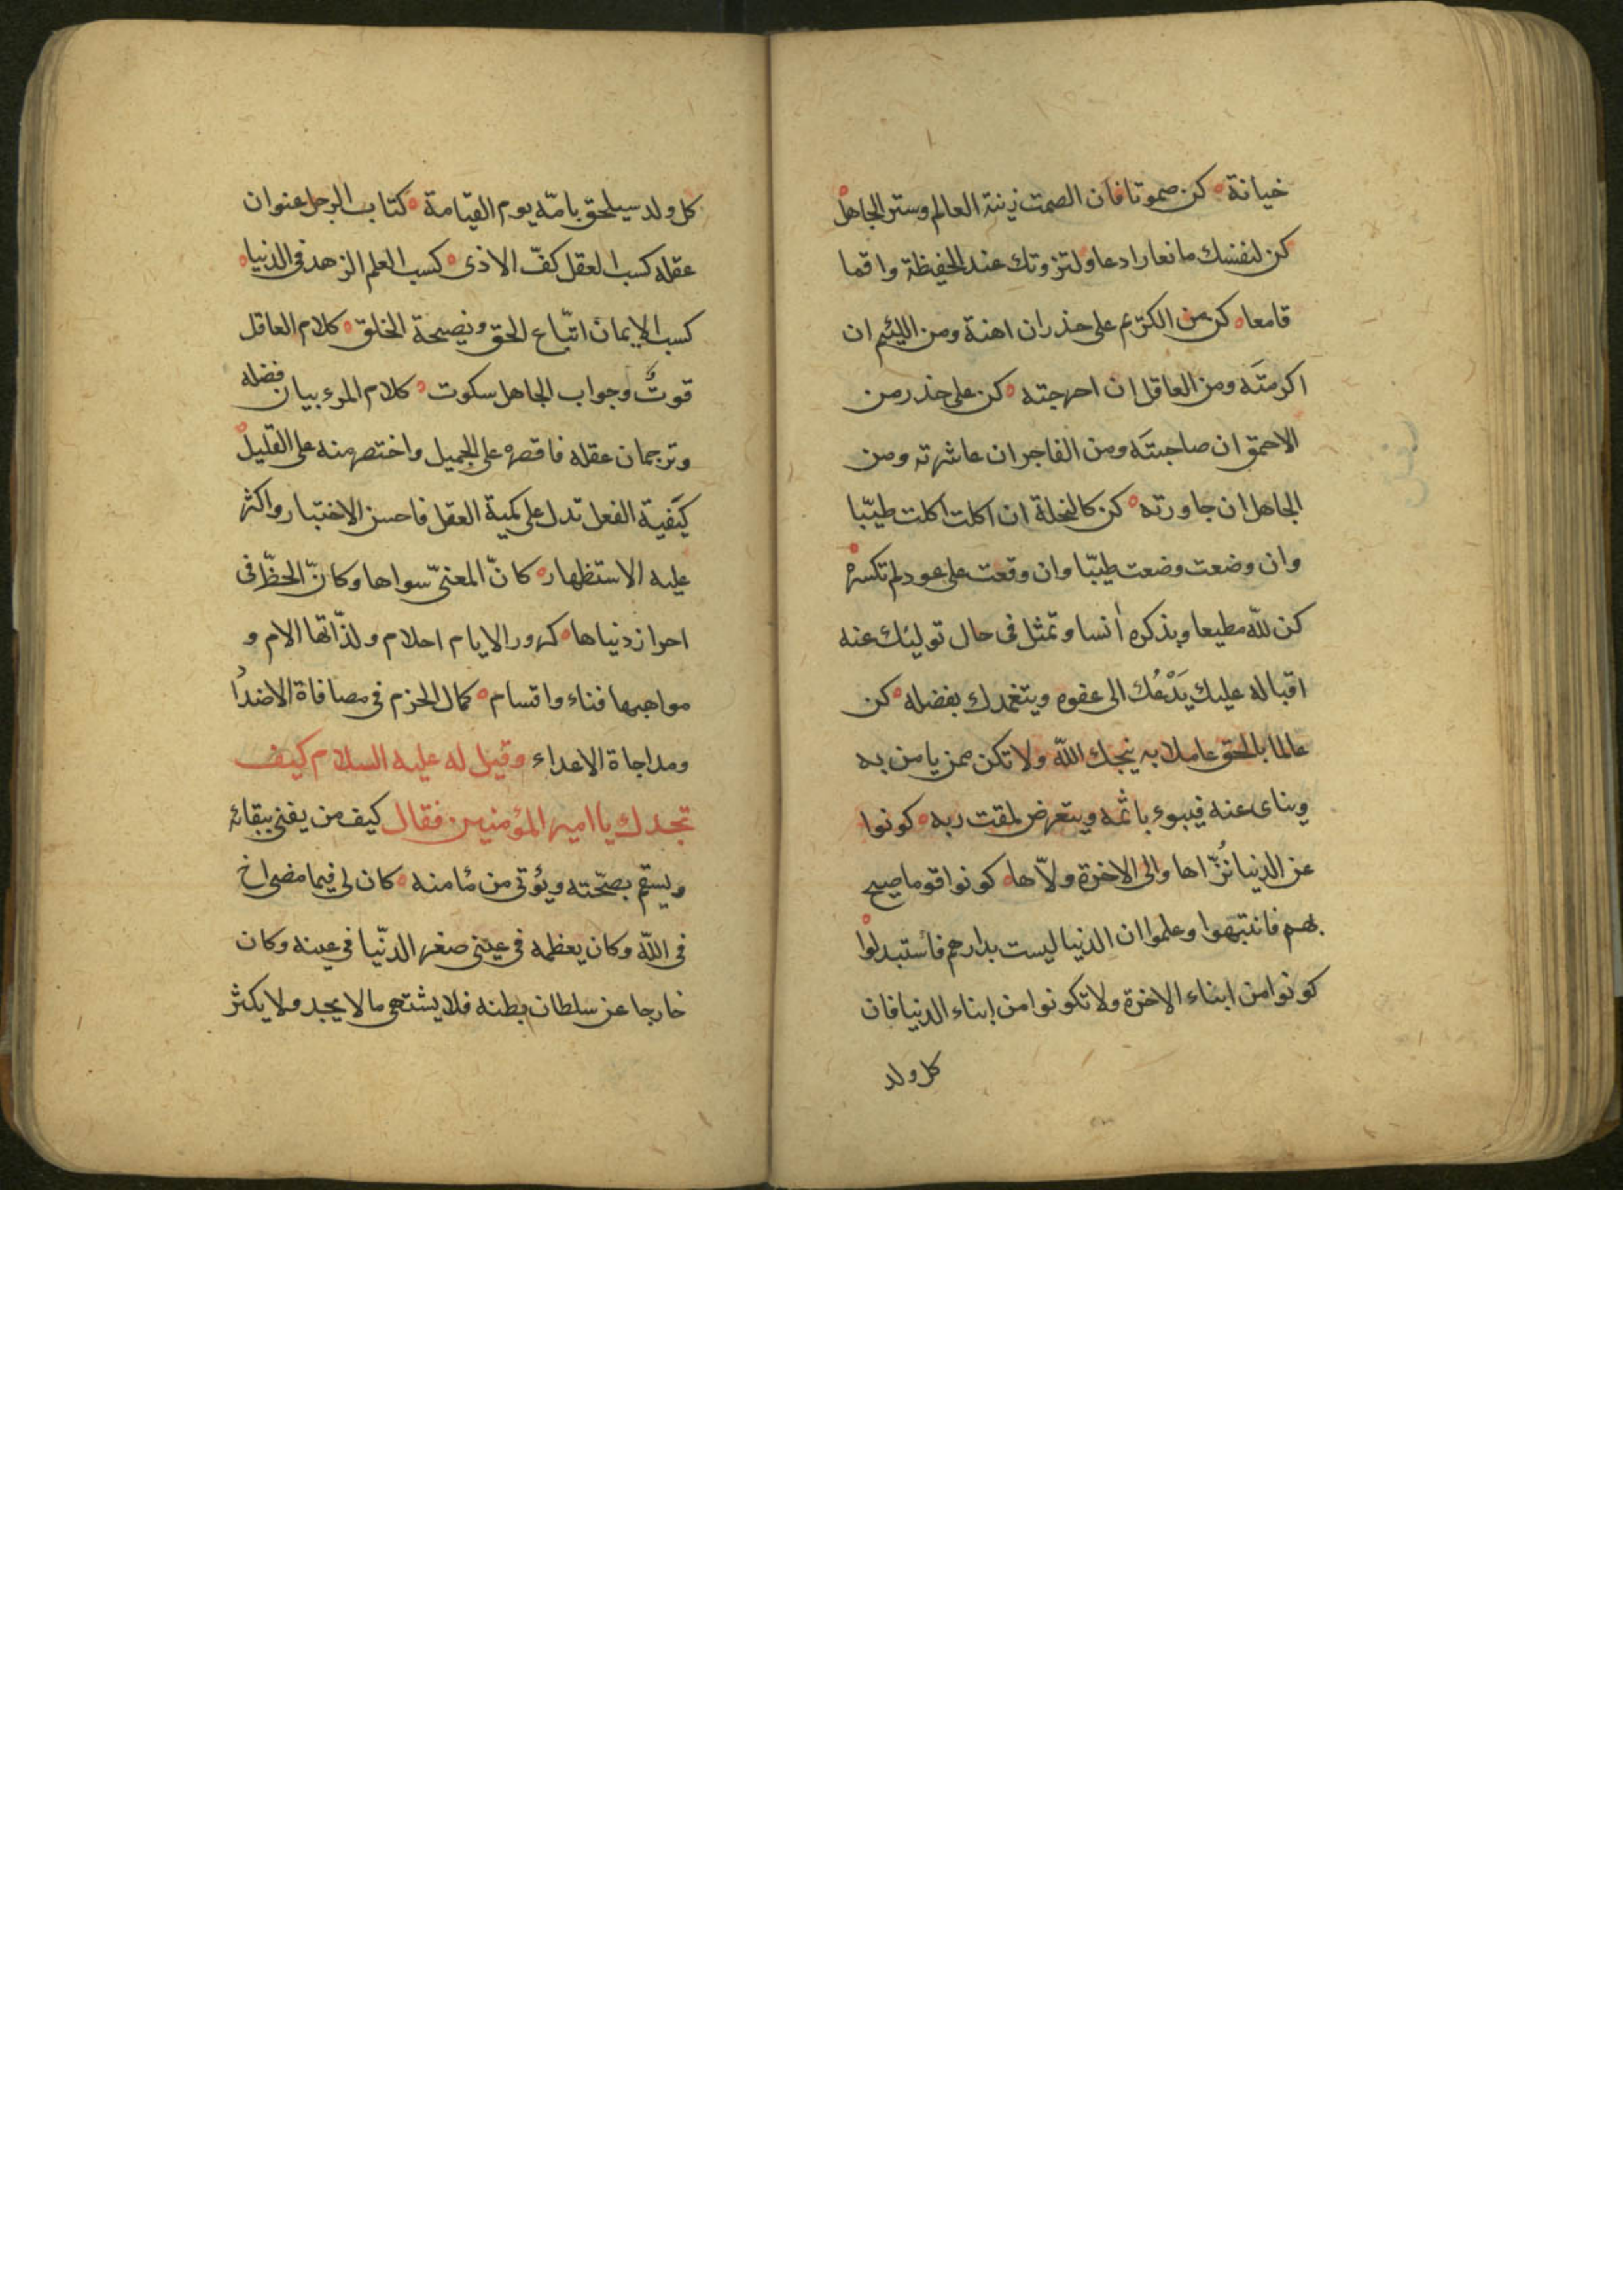 خيانة ه كن صموتا فان الصمت زينة العالم وستر الجاهل ه
كن لنفسك مانعا رادعا ولنزوتك عند الحفيظة واقما
قامعا ه كن من الكريم على حذر ان اهنة ومن اللئيم ان
اكرمته ومن العاقل ان احرجته ه كن على حذر من
الاحمق ان صاحبته ومن الفاجر ان عاشرته ومن
الجاهل ان جاورته ه كن كالنحلة ان اكلت اكلت طيّبا
وان وضعت وضعت طيّبا وان وقعت على عود لم تكسره ه
كن للّه مطيعا وبذكره أنسا وتمثل فى حال توليك عنه
اقباله عليك يَدْعُك الى عفوه ويتغمدك بفضله ه كن
عالما بالحق عاملا به ينجك اللّه ولا تكن ممن يامن به
ويناى عنه فيبوء باثمه ويتعرض لمقت ربه ه كونوا
عن الدنيا نُزّاها والى الاخرة ولّاها ه كونوا قوما صيح
بهم فانتبهوا وعلموا ان الدنيا ليست بدارهم فاستبدلوا ه
كونوا من ابناء الاخرة ولا تكونوا من ابناء الدنيا فان
كل ولد
كل ولد سيلحق بامّه يوم القيامة ه كتاب الرجل عنوان
عقله كسب العقل كفّ الاذى ه كسب العلم الزهد فى الدنيا ه
كسب الايمان اتّباع الحق ونصيحة الخلق ه كلام العاقل
قوتٌ وجواب الجاهل سكوت ه كلام المرء بيان فضله
وترجمان عقله فاقصره على الجميل واختصر منه على القليل ه
كيَفية الفعل تدل على كمية العقل فاحسن الاختبار واكثر
عليه الاستظهار ه كانّ المعنىّ سواها وكانّ الحظّ فى
احراز دنياها ه كرور الايام احلام ولذّاتها الام و
مواهبها فناء واقسام ه كمال الحزم فى مصافاة الاضداد
ومداجاة الاعداء وقيل له عليه السلام كيف
تجدك يا امير المؤمنين فقال كيف من يفنى ببقائه
ويسقم بصحّته ويؤتى من مأمنه ه كان لى فيما مضى اخ
فى اللّه وكان يعظمه فى عينى صغر الدنّيا فى عينه وكان
خارجا عن سلطان بطنه فلا يشتهى ما لا يجد ولا يكثر